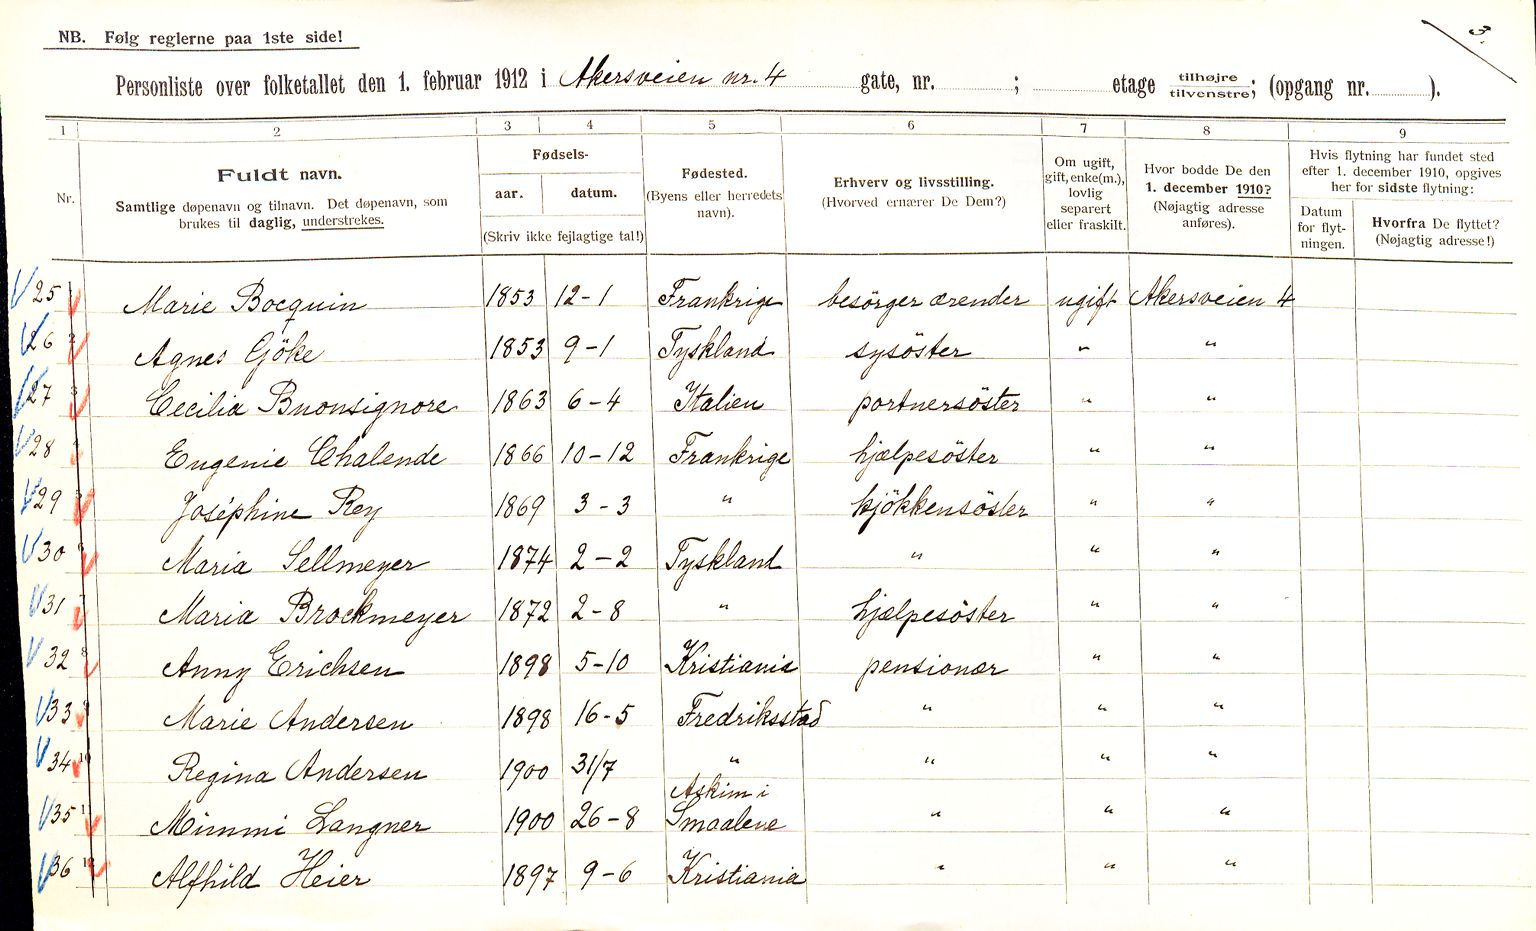 NB. Følg reglerne paa 1ste side!
3.
Personliste over folketallet den 1. februar 1912 i Akersveien nr. 4 gate, nr. ; etage tilhøjre tilvenstre; (opgang nr. ).
1 2 3 4 5 6 7 8 9
Nr.
Fuldt navn.
Samtlige døpenavn og tilnavn. Det døpenavn, som
brukes til daglig, understrekes.
Fødsels-
aar. datum.
(Skriv ikke fejlagtige tal!)
Fødested.
(Byens eller herredets
navn).
Erhverv og livsstilling.
(Hvorved ernærer De Dem?)
Om ugift,
gift, enke(m.),
lovlig
separert
eller fraskilt.
Hvor bodde De den
1. december 1910?
(Nøjagtig adresse
anføres).
Hvis flytning har fundet sted
efter 1. december 1910, opgives
her for sidste flytning:
Datum
for flyt-
ningen.
Hvorfra De flyttet?
(Nøjagtig adresse!)
25 Marie Bocquin 1853 12-1 Frankrige besörger ærender ugift Akersveien 4
26 2 Agnes Göke 1853 9-1 Tyskland sysöster " "
27 3 Cecilia Buonsignore 1863 6-4 Italien portnersöster " "
28 4 Eugenie Chalende 1866 10-12 Frankrige hjælpesöster " "
29 5 Joséphine Rey 1869 3-3 " kjökkensöster " "
30 6 Maria Sellmeyer 1874 2-2 Tyskland " " "
31 7 Maria Brockmeyer 1872 2-8 " hjælpesöster " "
32 8 Anny Erichsen 1898 5-10 Kristiania pensionær " "
33 9 Marie Andersen 1898 16-5 Fredriksstad " " "
34 10 Regina Andersen 1900 31/7 " " " "
35 11 Mimmi Langner 1900 26-8 Askim i Smaalene " " "
36 12 Alfhild Heier 1897 9-6 Kristiania " " "